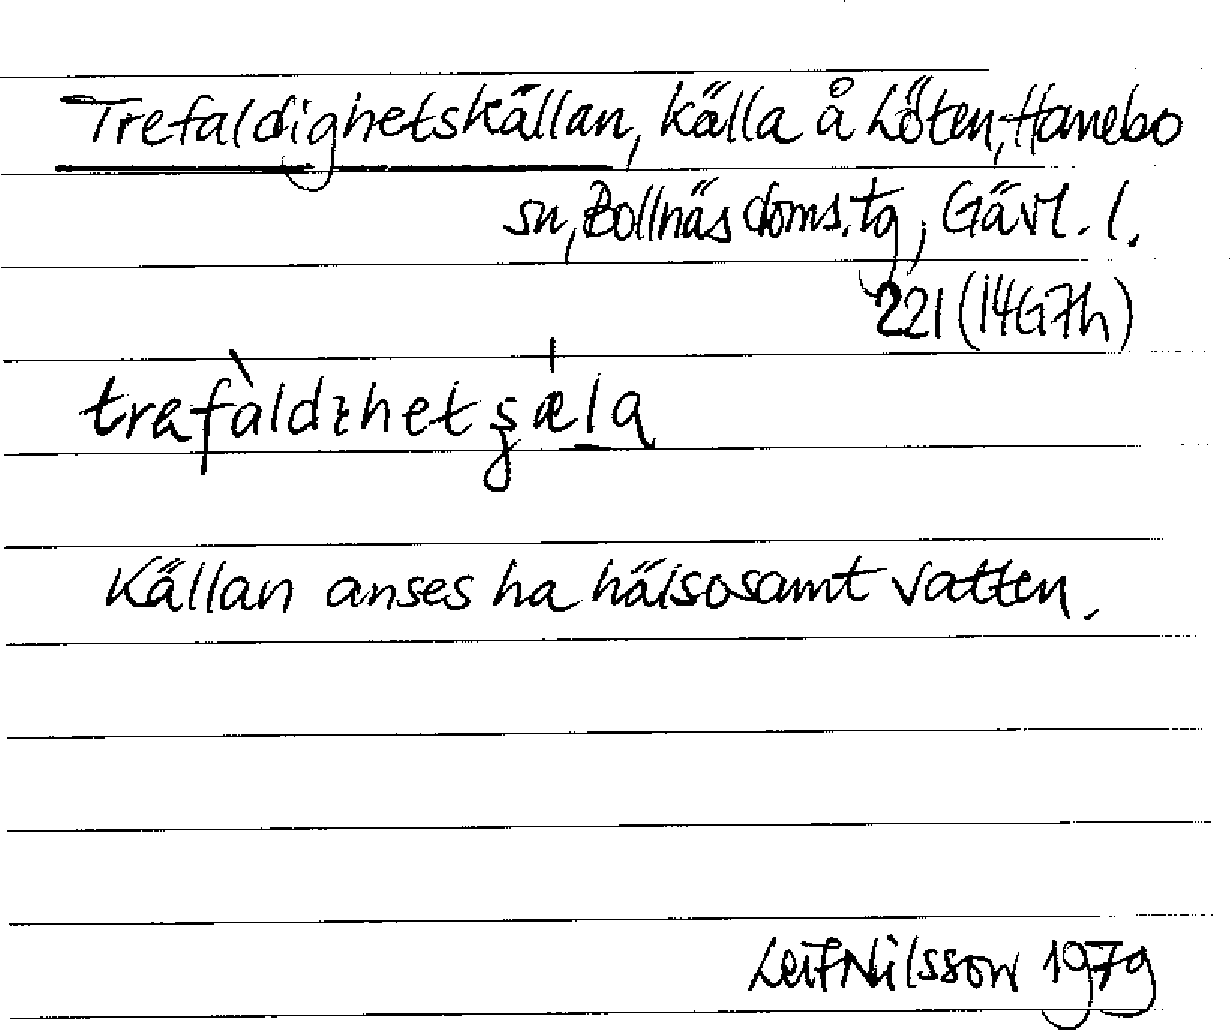 Trefaldighetskällan, källa å Löten, Hanebo
sn, Bollnäs doms.tg, Gävl. l.
221 (14G7h)
Källan anses ha hälsosamt vatten.
Leif Nilsson 1979